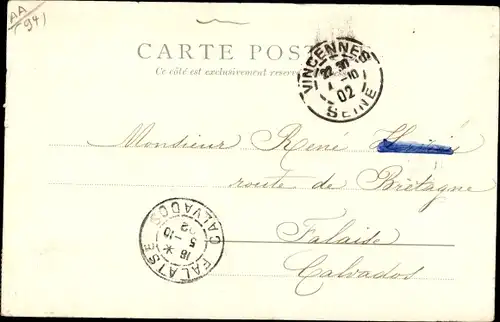 AA
(94)
CARTE POST
Ce côté est exclusivement réservé
VINCENNES
22 30
4 -10
02
SEINE
Monsieur René
route de Bretagne
Falaise
Calvados
FALAISE
16 *
5 -10
02
CALVADOS